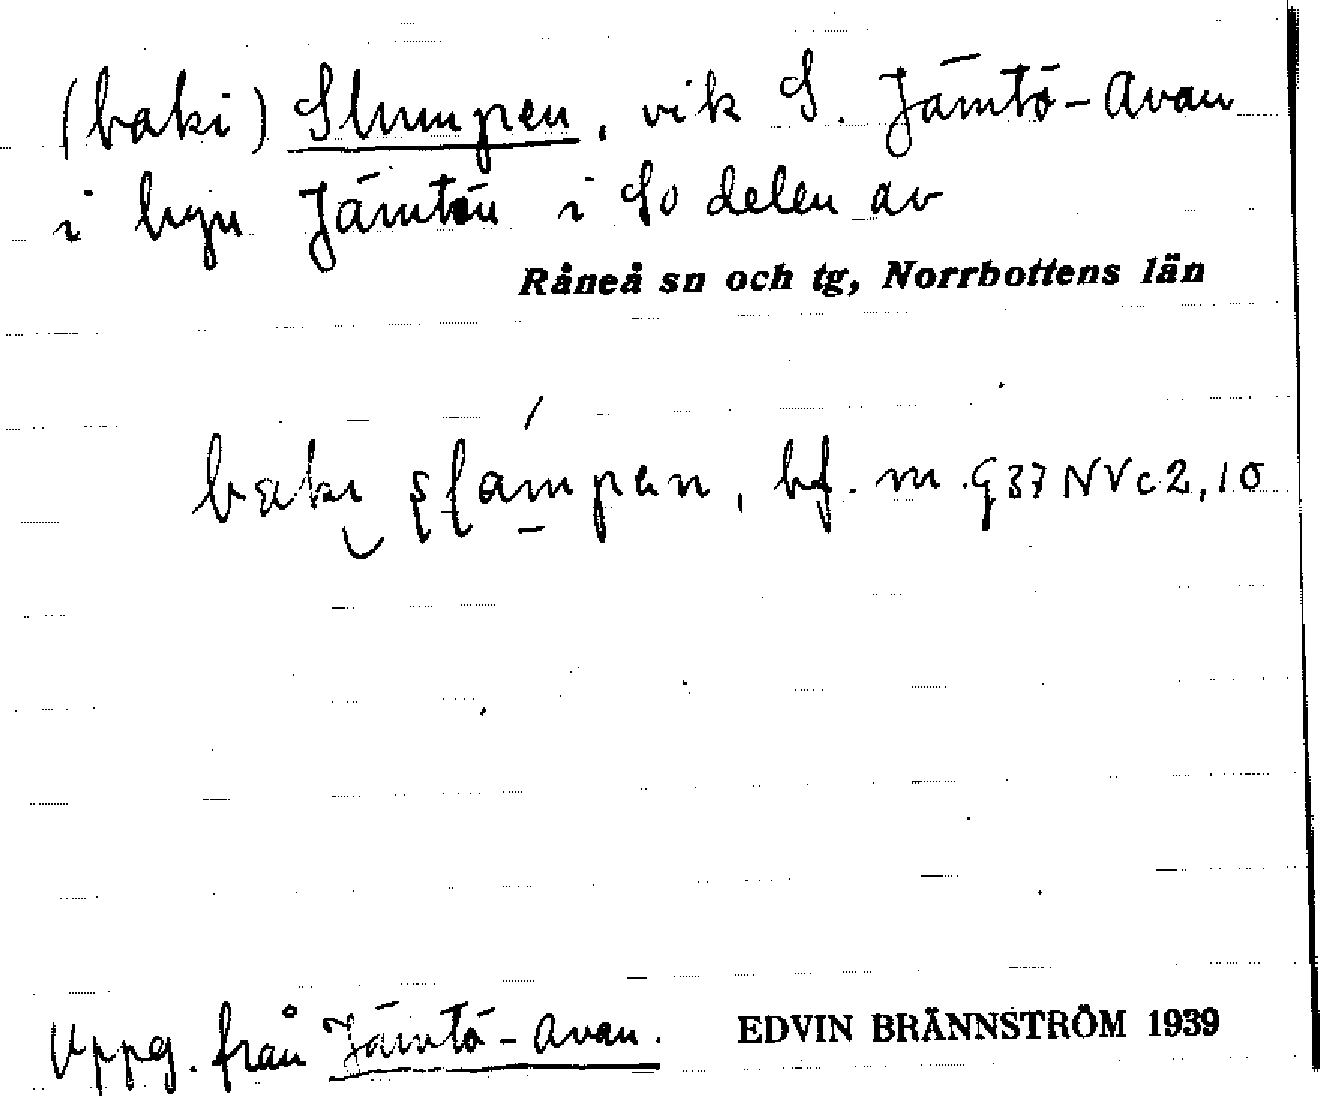 (baki) Slumpen, vik S. Jämtö-Avan
i byn Jämtön i So delen av
Råneå sn och tg, Norrbottens län
baki slampen, bf. m. 937 NV c 2, 10
Uppg. från Jämtö-Avan.
EDVIN BRÄNNSTRÖM 1939